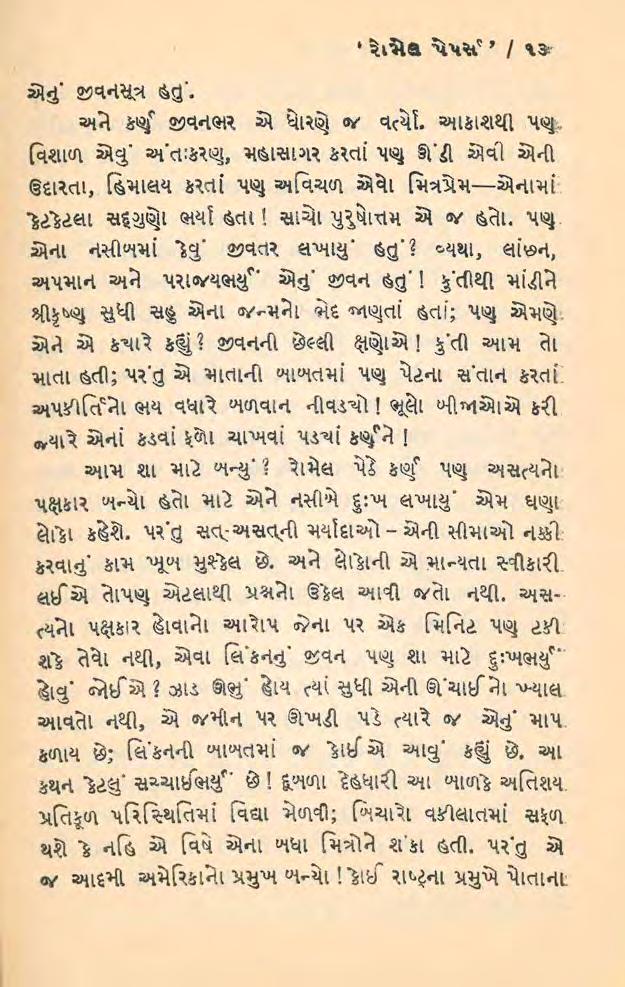 ‘રોમેલ પેપર્સ’ / ૧૩
એનું જીવનસૂત્ર હતું.
અને કર્ણ જીવનભર એ ધોરણે જ વર્ત્યો. આકાશથી પણ
વિશાળ એવું અંતઃકરણ, મહાસાગર કરતાં પણ ઊંડી એવી એની
ઉદારતા, હિમાલય કરતાં પણ અવિચળ એવો મિત્રપ્રેમ—એનામાં
કેટકેટલા સદ્દગુણો ભર્યા હતા! સાચો પુરુષોત્તમ એ જ હતો. પણ
એના નસીબમાં કેવું જીવતર લખાયું હતું? વ્યથા, લાંછન,
અપમાન અને પરાજયભર્યું એનું જીવન હતું! કુંતીથી માંડીને
શ્રીકૃષ્ણ સુધી સહુ એના જન્મનો ભેદ જાણતાં હતાં; પણ એમણે
એને એ ક્યારે કહ્યું? જીવનની છેલ્લી ક્ષણોએ! કુંતી આમ તો
માતા હતી; પરંતુ એ માતાની બાબતમાં પણ પેટના સંતાન કરતાં
અપકીર્તિનો ભય વધારે બળવાન નીવડયો! ભૂલો બીજાઓએ કરી
જ્યારે એનાં કડવાં ફળો ચાખવાં પડયાં કર્ણને!
આમ શા માટે બન્યું? રોમેલ પેઠે કર્ણ પણ અસત્યનો
પક્ષકાર બન્યો હતો માટે એને નસીબે દુઃખ લખાયું એમ ઘણા
લોકો કહેશે. પરંતુ સત્-અસત્‌ની મર્યાદાઓ – એની સીમાઓ નક્કી
કરવાનું કામ ખૂબ મુશ્કેલ છે. અને લોકોની એ માન્યતા સ્વીકારી
લઈએ તોપણ એટલાથી પ્રશ્નનો ઉકેલ આવી જતો નથી. અસ-
ત્યનો પક્ષકાર હોવાનો આરોપ જેના પર એક મિનિટ પણ ટકી
શકે તેવો નથી, એવા લિંકનનું જીવન પણ શા માટે દુઃખભર્યું
હોવું જોઈએ? ઝાડ ઊભું હોય ત્યાં સુધી એની ઊંચાઈનો ખ્યાલ
આવતો નથી, એ જમીન પર ઊખડી પડે ત્યારે જ એનું માપ
કળાય છે; લિંકનની બાબતમાં જ કોઈએ આવું કહ્યું છે. આ
કથન કેટલું સચ્ચાઈભર્યું છે! દૂબળા દેહધારી આ બાળકે અતિશય
પ્રતિકૂળ પરિસ્થિતિમાં વિદ્યા મેળવી; બિચારો વકીલાતમાં સફળ
થશે કે નહિ એ વિષે એના બધા મિત્રોને શંકા હતી. પરંતુ એ
જ આદમી અમેરિકાનો પ્રમુખ બન્યો! કોઈ રાષ્ટ્રના પ્રમુખે પોતાના